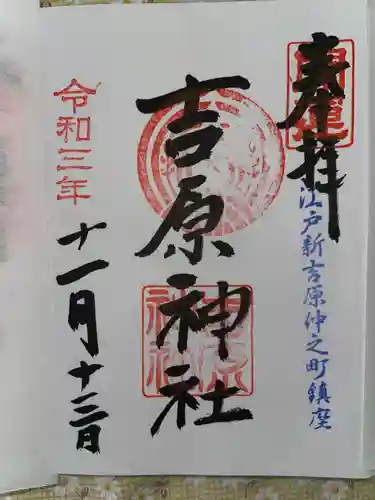 奉拝
開運
江戸新吉原仲之町鎮座
吉原神社
吉原神社
令和三年
十一月十三日